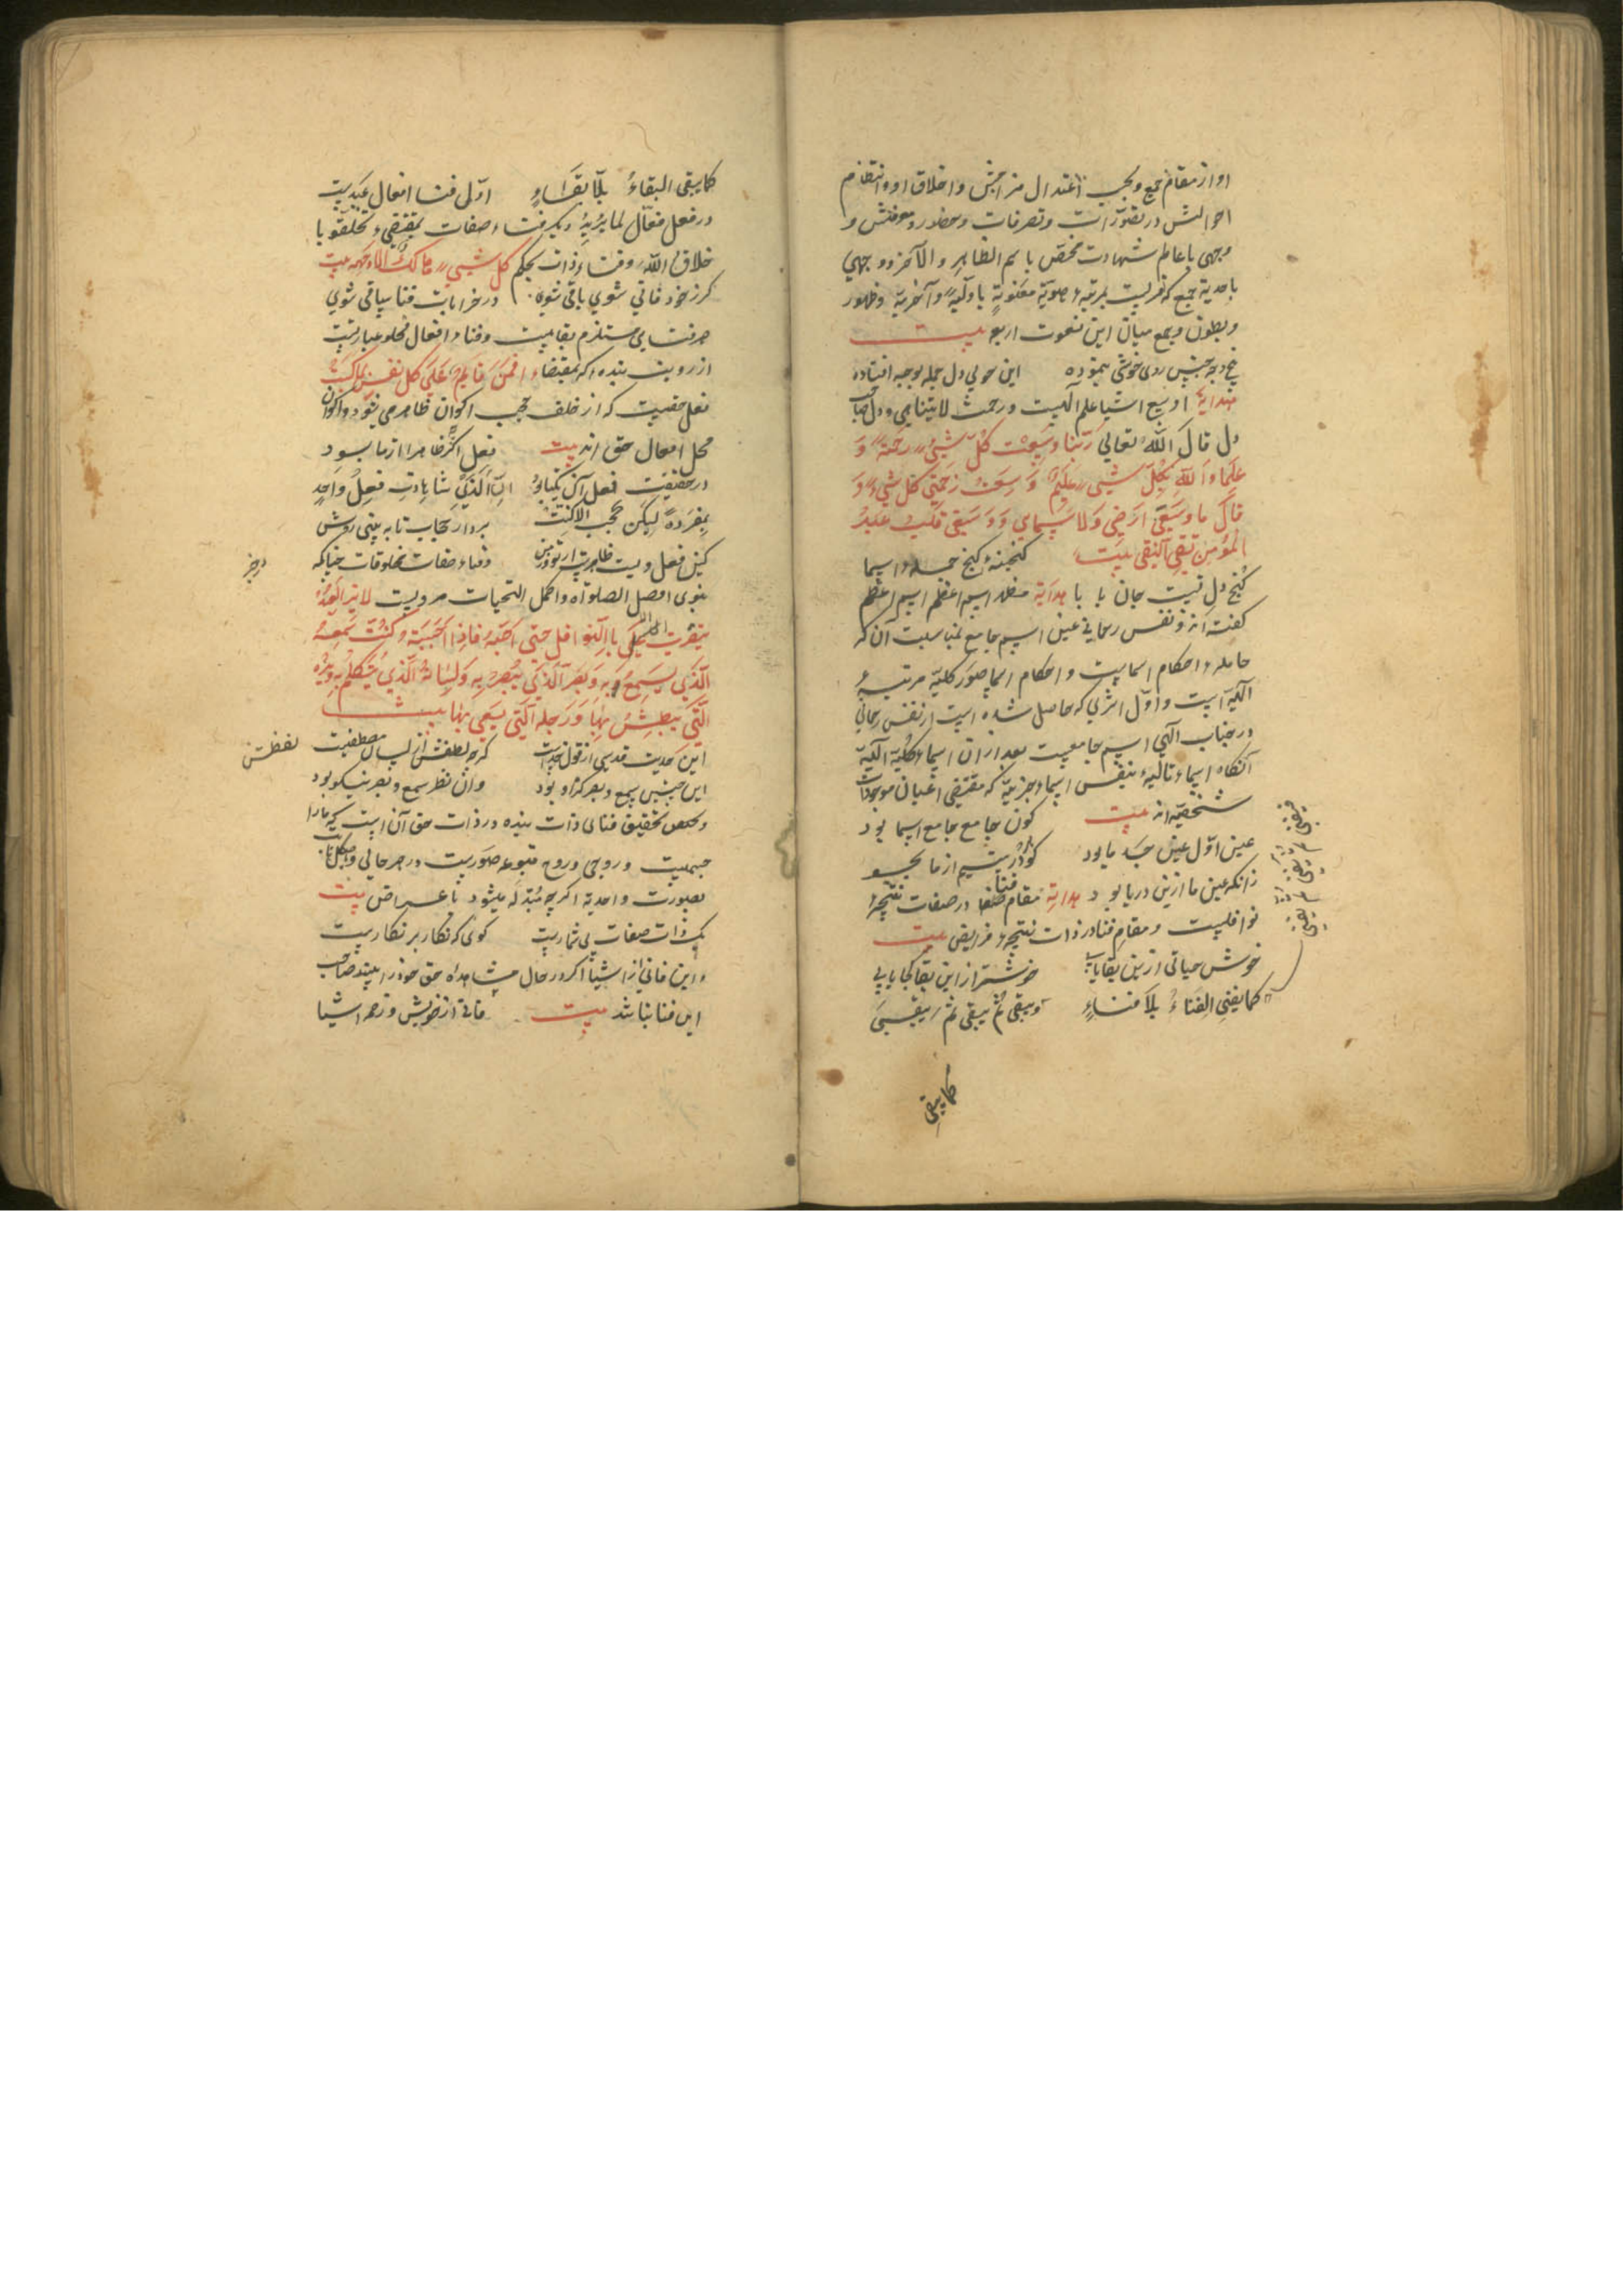 او از مقام جمع و بحسب اعتدال مزاجش و اخلاق او و انتظام
احوالش در تصورات و تصرفات و حضور و معرفتش و
وجهی با عالم شهادت مختص باسم الظاهر و الآخر و وجهی
باحدیة جمع که نفریست بمرتبهٔ معنویة باولیة و آخریة و ظهور
و بطون و جمع میان این نعوت اربعه بیت
پنج وجه چنین روی خوشی بنموده این حوبی دل جمله بوجه افتاده
هدایة اوسع اشیا علم الهیست و رحمت لایتناهی و دل صاحب
دل قال الله تعالی ربنا وسعت کل شیء رحمة و
علما و الله بکل شیء علیم و سعت رحمتی کل شیء و
قال ما وسعنی ارضی ولا سمائی و وسعنی قلب عبد
المؤمن تقی النقی بیت گنجینهٔ گنج جملهٔ اسما
گنج دل تست جان بابا هدایة مظهر اسم اعظم اسم اعظم
گفته اند و نفس رحمانی عین اسم جامع بمناسبت آن که
حامله احکام اسماست و احکام اسما صور کلیه مرتبهٔ
الهیة است و اول اثری که حاصل شده است از نفس رحمانی
در جناب الهی اسم جامعست بعد از ان اسماء کلیة الهیة
آنکاه اسماء تالیه بنفس اسماء جزییه که مقتضی اعیان موجودات
شخصیه اند بیت کون جامع جامع اسما بود
عین اول عین جد ما بود گوهر در یتیم از ما بجو
زانکه عین ما ازین دریا بود هدایة مقام فنا در صفات نتیجهٔ
نوافلست و مقام فنا در ذات نتیجهٔ فرایض بیت
خوش حیاتی ازین بقا یابی خوشتر از این بقا کجا یابی
کما یفنی الفناء بلا فناء و یبقی ثم یبقی ثم یبقی
کما یبقی
کما یبقی البقاء بلا بقاء اولی فنا افعال عبدیت
در فعل فعال لما یرید دیگر فناء صفات بمقتضیء تخلقوا با
خلاق الله و فناء ذات بحکم کل شیء هالک الا وجهه بیت
کر ز خود فانی شوی باقی شوی در خرابات فنا ساقی شوی
هر فنایی مستلزم بقاییست و فناء افعال مخلوعبارتست
از رویت بنده که بمقتضاء افمن قایم علی کل نفس بما کسبت
فعل حقیست که از خلف حجب اکوان ظاهر می شود و اکوان
محل افعال حق اند بیت فعل اگر ظاهرا از ما بود
در حقیقت فعل آن یکتا بود ان الذی شاهدت فعل واحد
بمفرده لیکن بحجب الاکنة بردار حجاب تا به بینی روش
کین فعل ویست ظاهر از تو و من و فناء صفات مخلوقات چنانکه
درخبر
نبوی افضل الصلوة و اکمل التحیات مرویست لا یزال العبد
یتقرب الی بالنوافل حتی احبه فاذا احببته و کنت سمعه
الذی یسمع به و بصر الذی یبصر به و لسانه الذی یتکلم به و یده
التی یبطش بها و رجله التی یسعی بها بیت
این حدیث قدسی از قول خداست گرچه لفظش از لسان مصطفیست
لفظش
این چنین سمع و بصر کر او بود وان نظر سمع و بصر نیکو بود
و مخلص تحقیق فنائی ذات بنده در ذات حق آن است که ما را
جسمیت و روحی و روح متبوعه صوریست در هر حالی
بصورت واحدیة اگرچه متبدله میشود باعراض بیت
یک ذات صفات بی شماریست گوی که نکار بر نکاریست
و این فانی از اشیا اگر در حال مشاهده حق خود را بیند صاحب
این فنا نباشد بیت فانی از خویش و ز همه اشیا